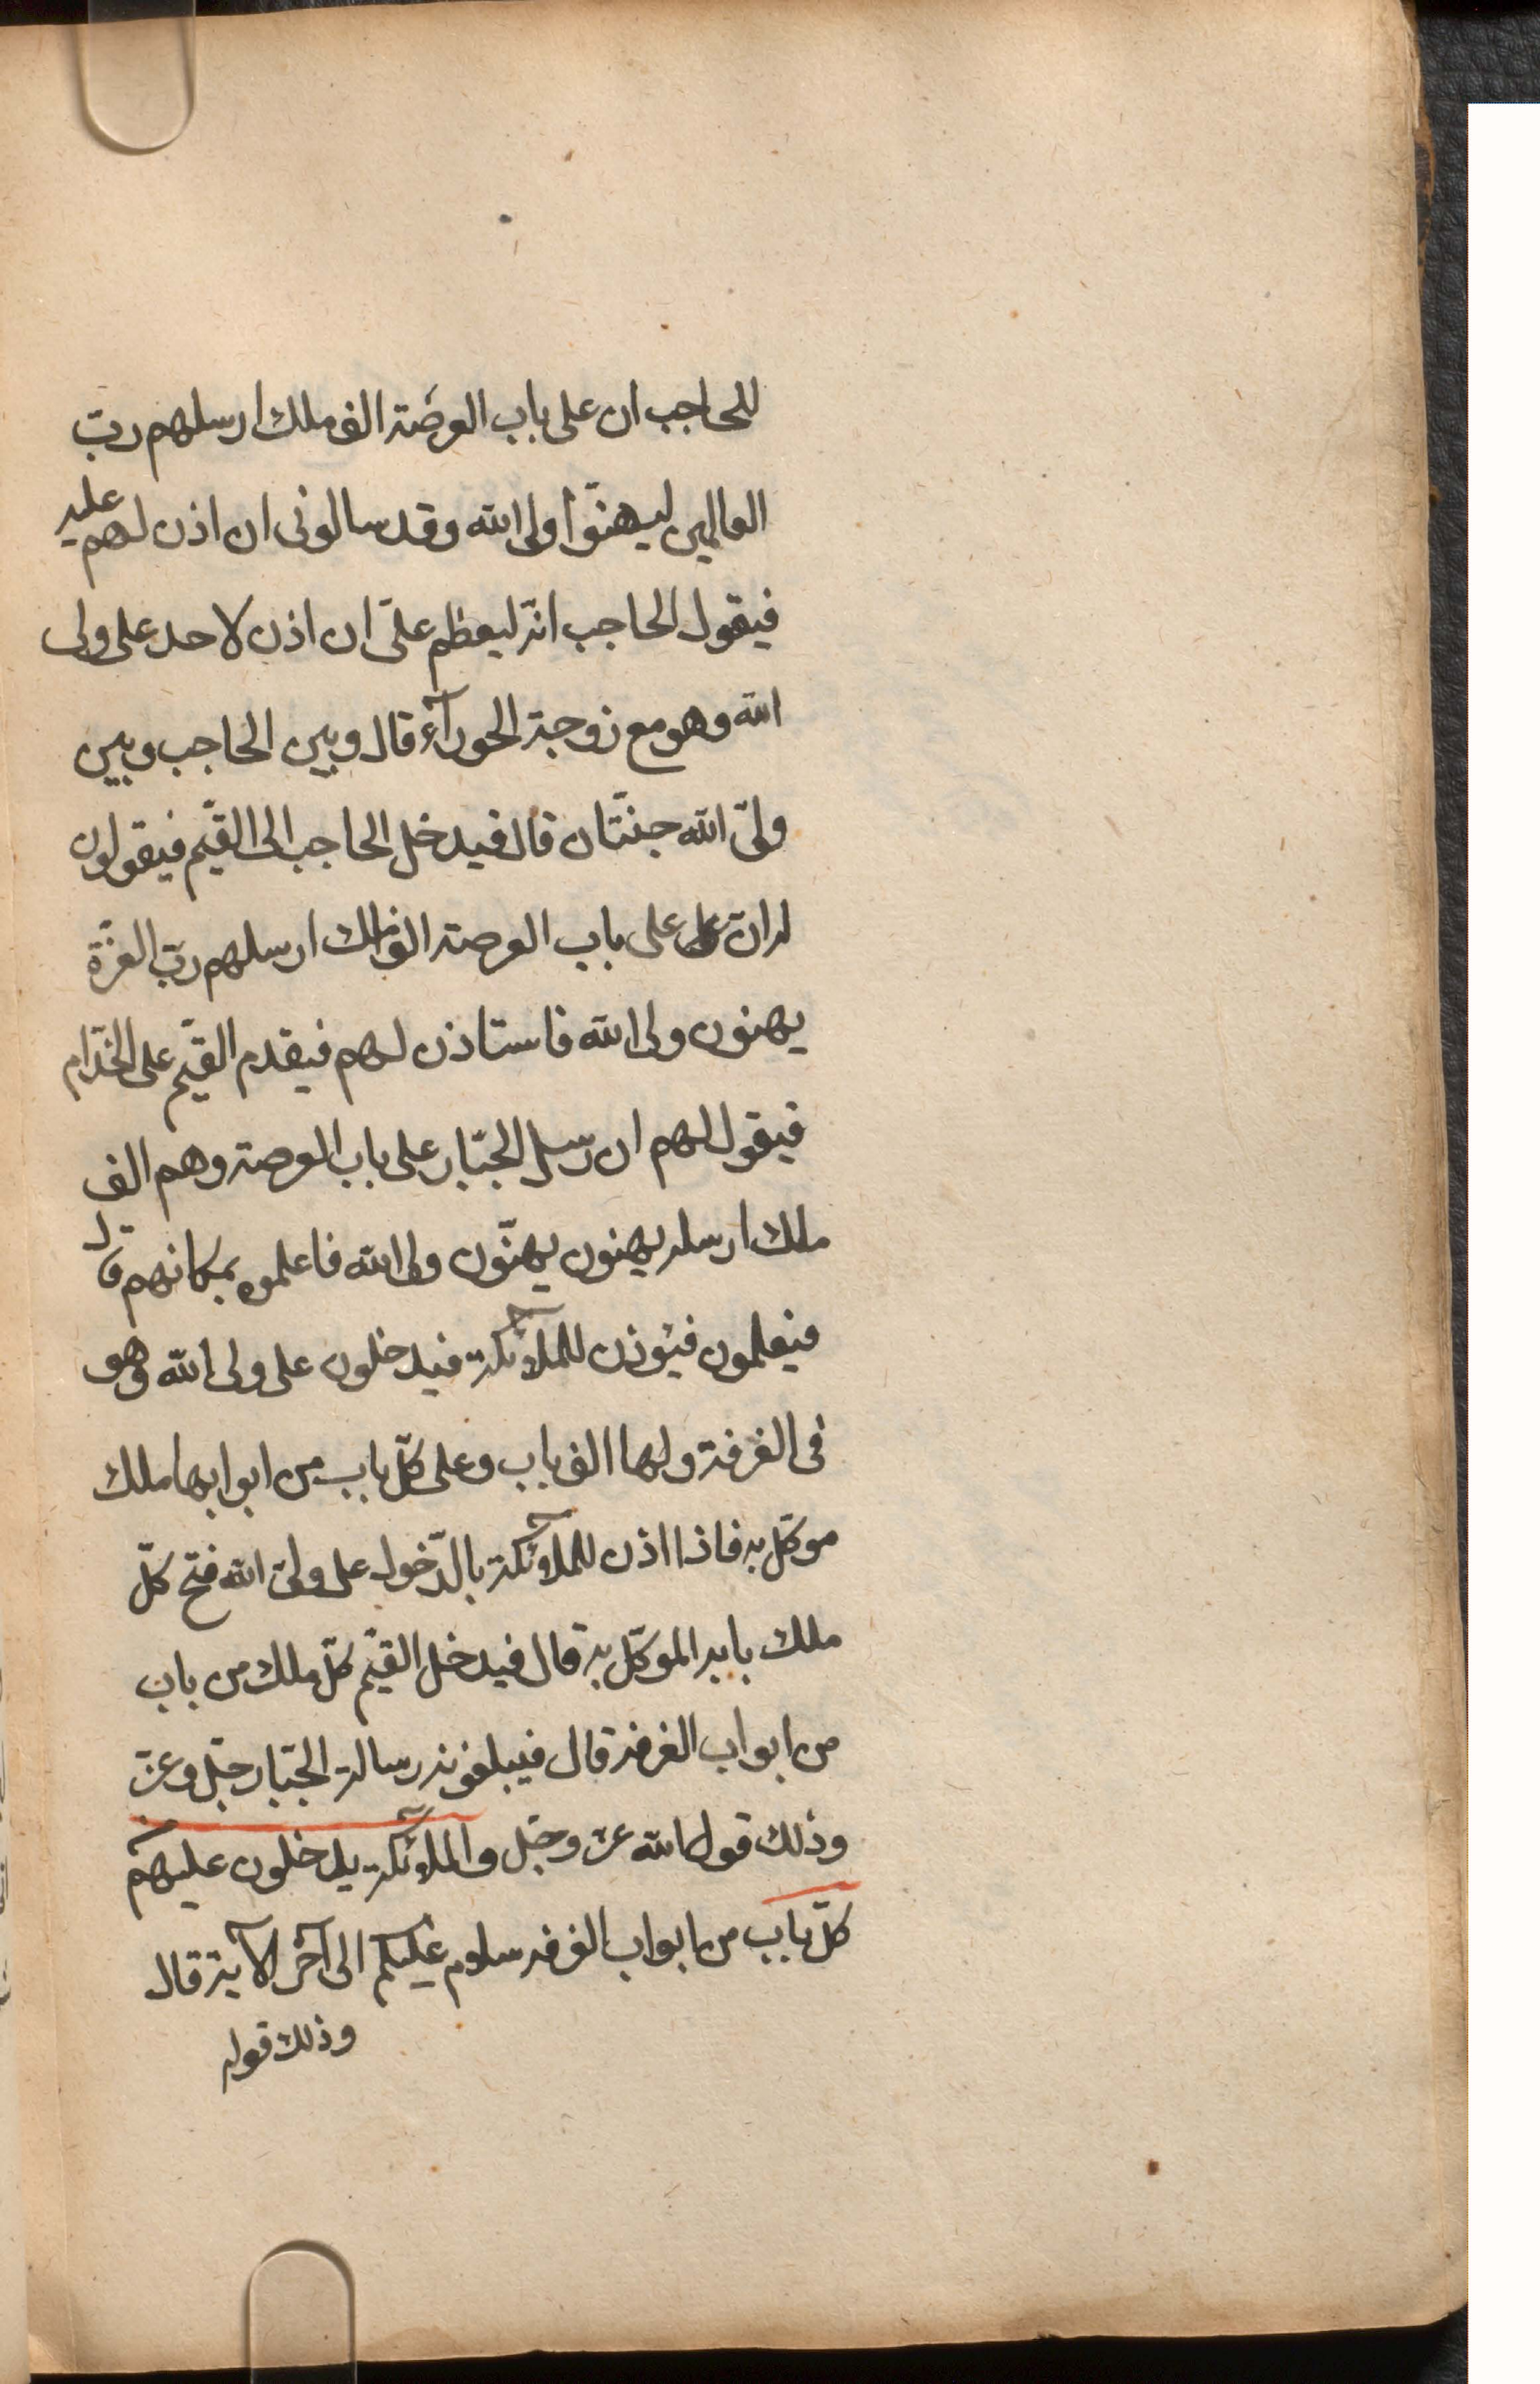 للحاجب ان على باب العرصة الف ملك ارسلهم ربّ
العالمين ليهنّوا ولى الله وقد سالونى ان اذن لهم عليه
فيقول الحاجب انّه ليعظم علىّ ان اذن لاحد على ولى
الله وهو مع زوجته الحورآء قال وبين الحاجب وبين
ولىّ الله جنّتان قال فيدخل الحاجب الى القيّم فيقولون
له انّ على باب العرصة الف ملك ارسلهم ربّ العزّة
يهنون ولى الله فاستاذن لهم فيقدم القيّم على الخدّام
فيقول لهم ان رسل الجبّار على باب العرصة وهم الف
ملك ارسله يهنون يهنّون ولى الله فاعلموه بمكانهم قال
فيعلمون فيؤذن للملآئكة فيدخلون على ولى الله وهو
فى الغرفة ولها الف باب وعلى كلّ باب من ابوابها ملك
موكّل به فاذا اذن للملآئكة بالدّخول على ولىّ الله فتح كلّ
ملك بابه الموكّل به قال فيدخل القيّم كلّ ملك من باب
من ابواب الغرفة قال فيبلغونه رسالة الجبّار جلّ وعزّ
وذلك قول الله عزّ وجلّ والملآئكة يدخلون عليهم
كلّ باب من ابواب الغرفه سلام عليكم الى آخر الآية قال
وذلك قوله